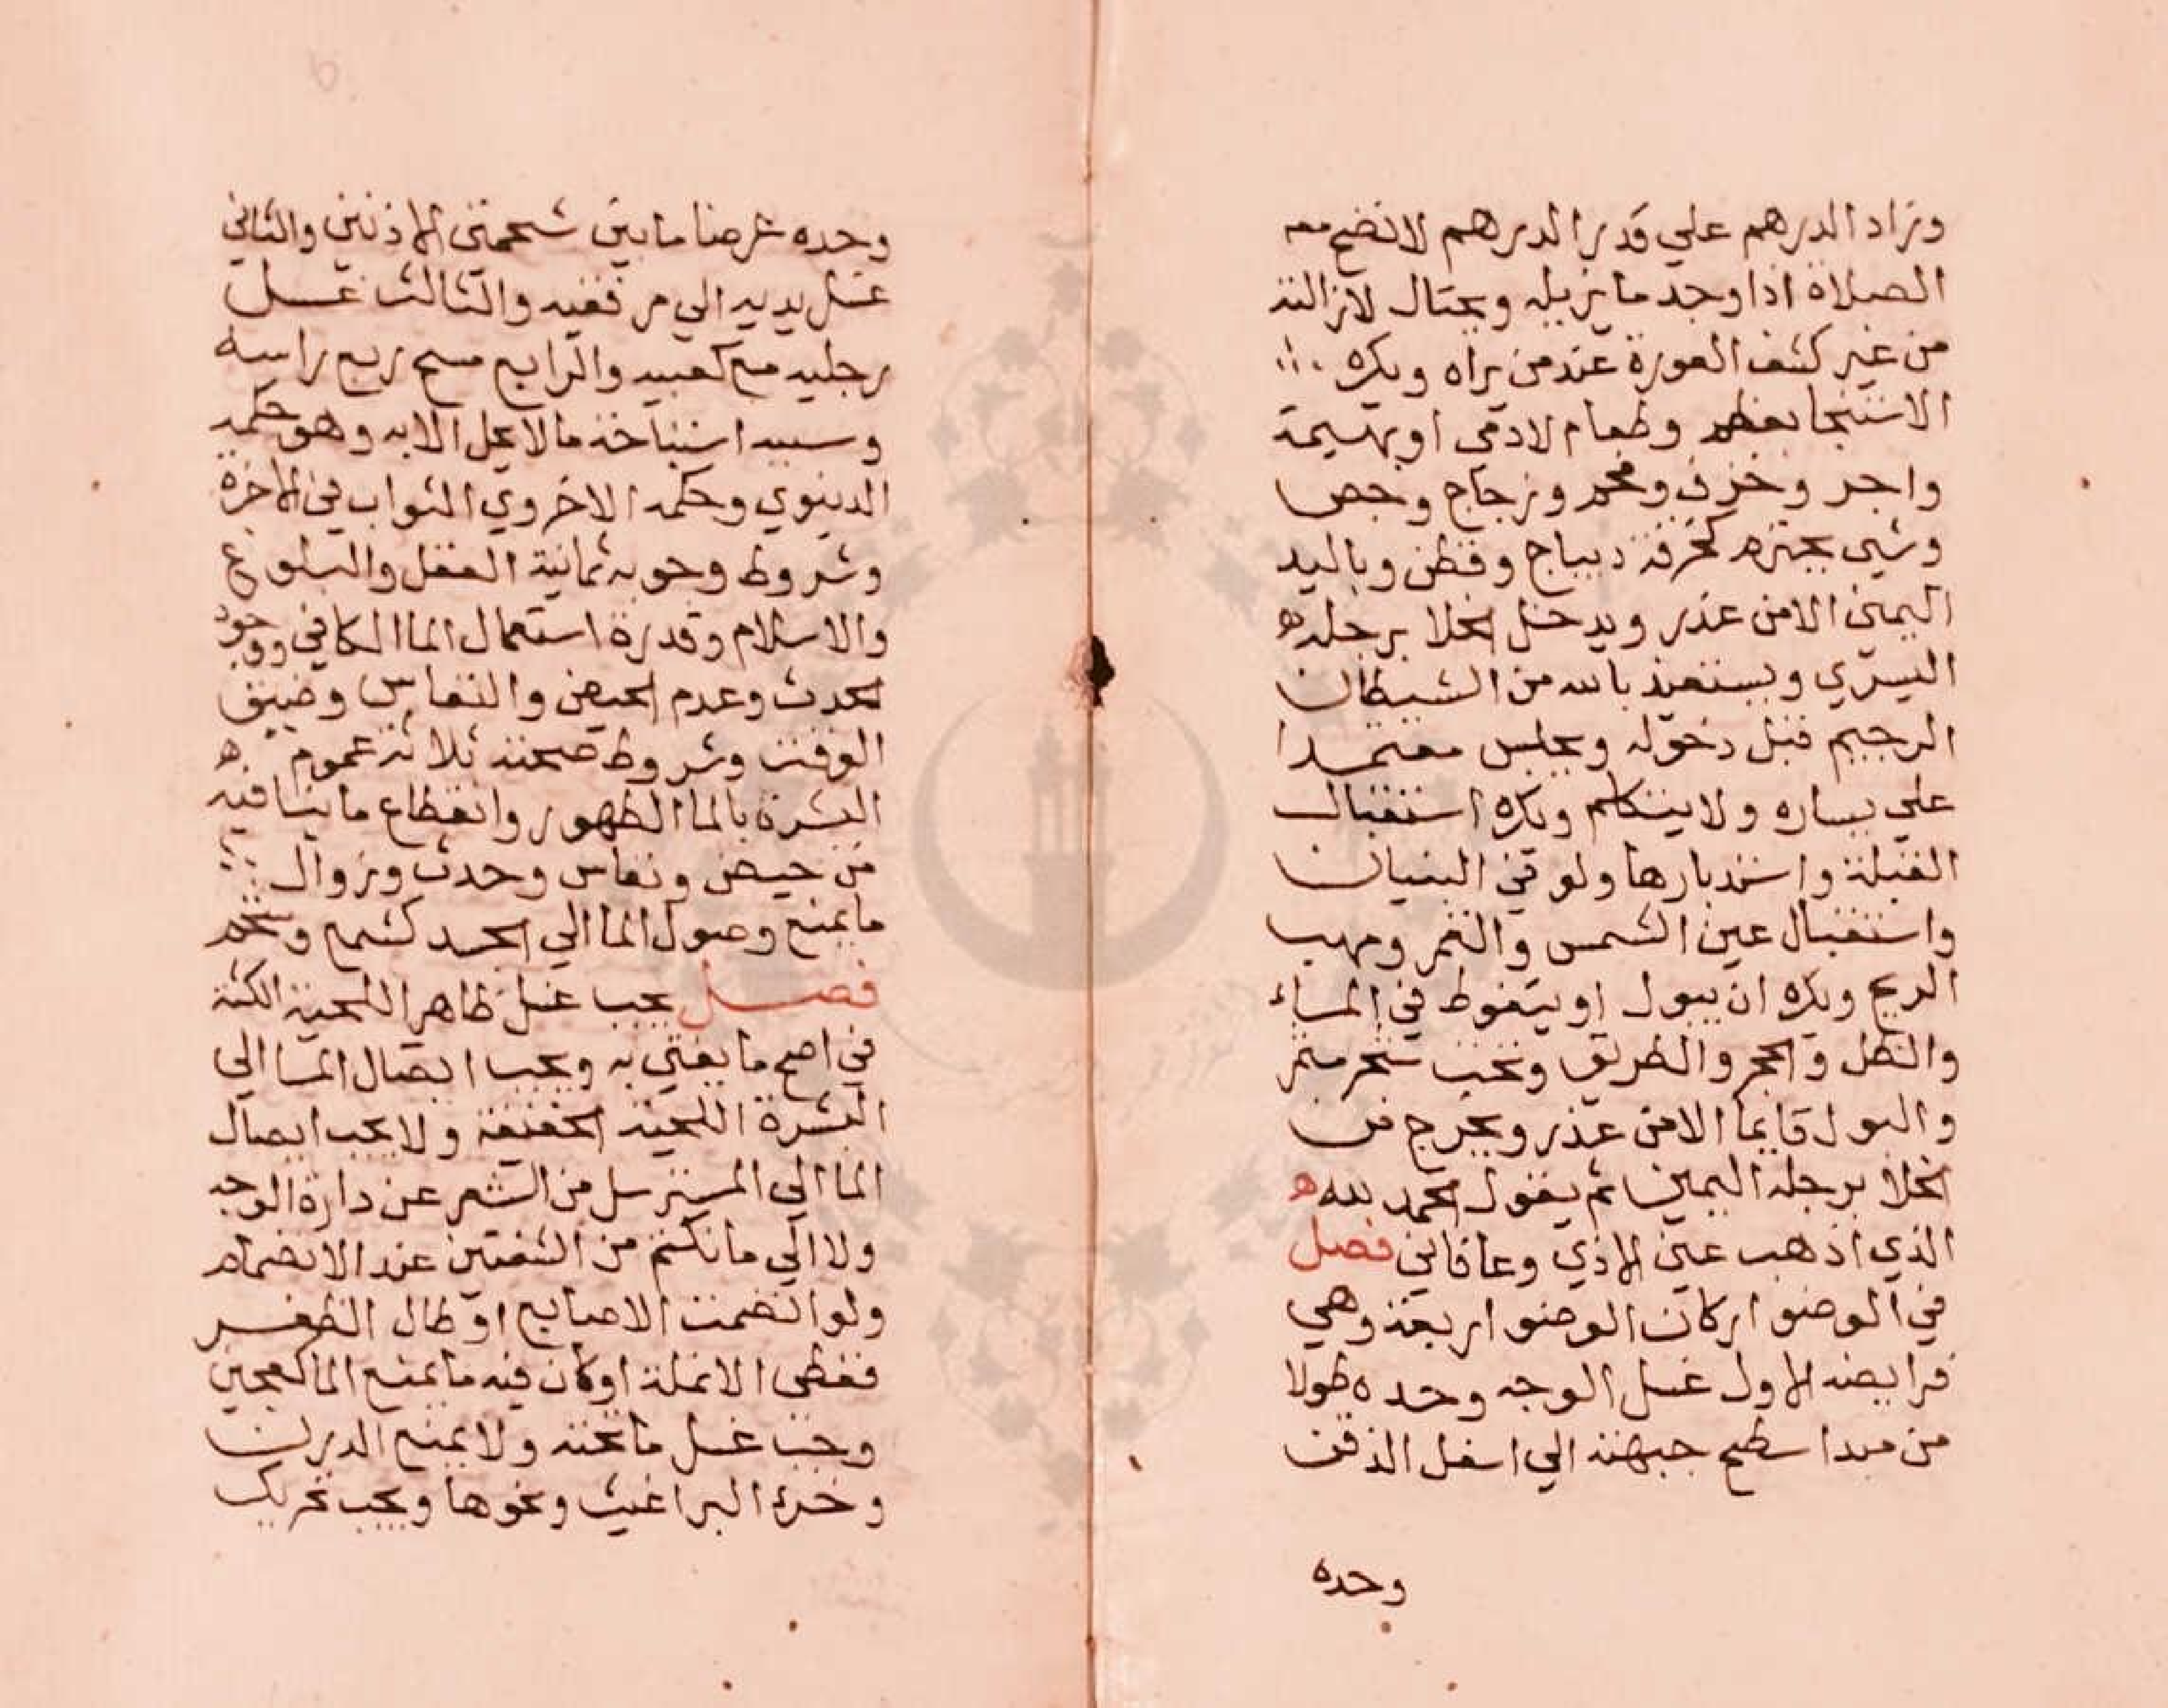 وزاد الدرهم علي قدر الدرهم لا تصح معه
الصلاة اذا وجد ما يزيله ويحتال لازالته
من غير كشف العورة عند من يراه ويكره
الاستنجا بعظم وطعام لادمي او بهيمة
واجر وخزف وفحم وزجاج وجص
وشي محترم كخرقة ديباج وقطن وباليد
اليمني الا من عذر ويدخل الخلا برجله
اليسري ويستعيذ بالله من الشيطان
الرجيم قبل دخوله ويجلس معتمدا
علي يساره ولا يتكلم ويكره استقبال
القبلة واستدبارها ولو في البنيان
واستقبال عين الشمس والقمر ومهب
الريح ويكره ان يبول او يتغوط في الماء
والظل والحجر والطريق وتحت شجر مثمر
والبول قايما الا من عذر ويخرج من
الخلا برجله اليمين ثم يقول الحمد لله
الذي اذهب عني الاذي وعافاني فصل
في الوضو اركان الوضو اربعة وهي
فرايضه الاول غسل الوجه وحده طولا
من مبدا سطح جبهته الي اسفل الذقن
وحده
وحده عرضا ما بين شحمتي الاذنين والثاني
غسل يديه الي مرفقيه والثالث غسل
رجليه مع كعبيه والرابع مسح ربع راسه
وسببه استباحة ما لا يحل الا به وهو حكمه
الدنيوي وحكمه الاخروي الثواب في الاخرة
وشروط وجوبه ثمانية العقل والبلوغ
والاسلام وقدرة استعمال الما الكافي ووجود
الحدث وعدم الحيض والنفاس وضيق
الوقت وشروط صحته ثلاثة عموم
البشرة بالما الطهور وانقطاع ما ينافيه
من حيض ونفاس وحدث وزوال
ما يمنع وصول الما الي الجسد كشمع وشحم
فصل يجب غسل ظاهر اللحية الكثة
في اصح ما يفتي به ويجب ايصال الما الي
البشرة اللحية الخفيفة ولا يجب ايصال
الما الي المسترسل من الشعر عن دارة الوجه
ولا الي ما نكتم من الشفتين عند الانضمام
ولو انضمت الاصابع او طال الظفر
فغطي الانملة او كان فيه ما يمنع الما كعجين
وجب غسل ما تحته ولا يمنع الدرن
وخرء البراغيث ونحوها ويجب تحريك